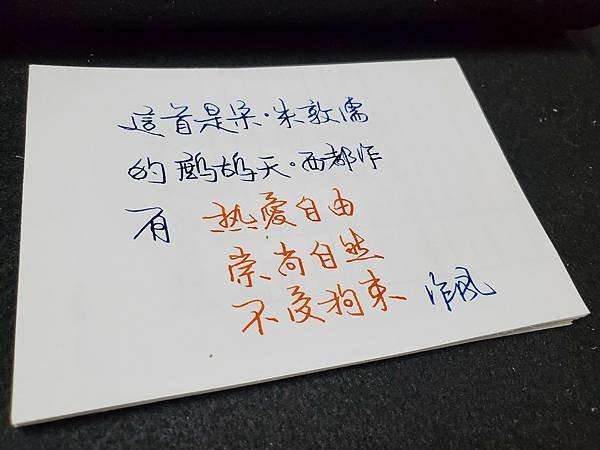 這首是宋·朱敦儒
的鷓鴣天·西都作
有 热愛自由
崇尚自然
不受拘束 作风